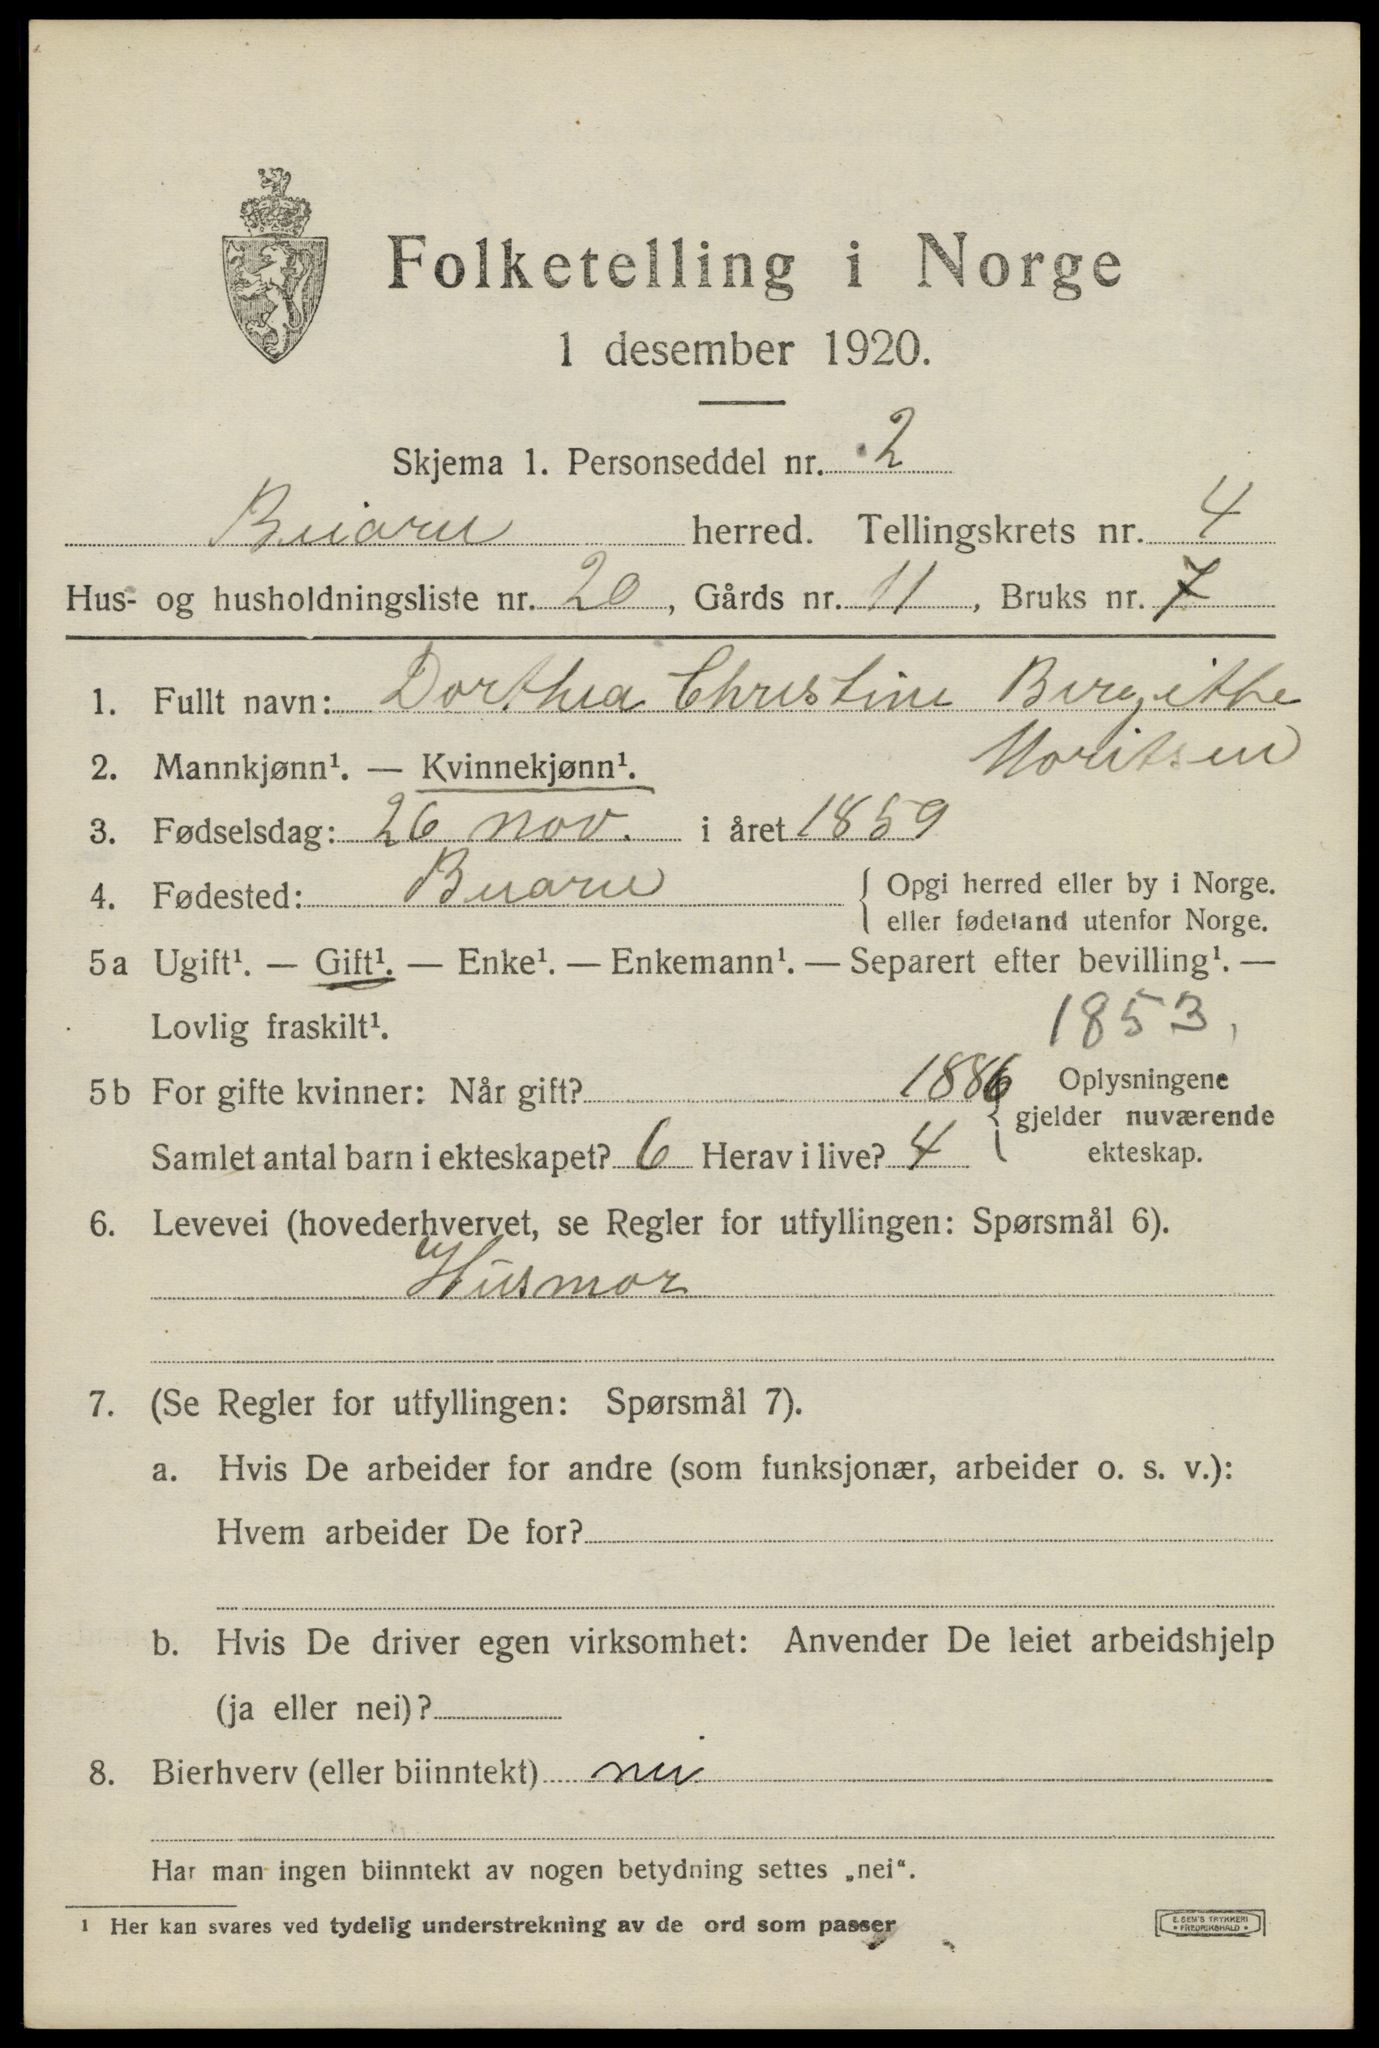 Folketelling i Norge
1 desember 1920.
Skjema 1. Personseddel nr. 2
Beiarn herred. Tellingskrets nr. 4
Hus- og husholdningsliste nr. 20, Gårds nr. 11, Bruks nr. 7
1. Fullt navn: Dorthea Christine Birgithe
Moritsen
2. Mannkjønn¹. — Kvinnekjønn¹.
3. Fødselsdag: 26 nov. i året 1859
4. Fødested: Beiarn { Opgi herred eller by i Norge.
eller fødeland utenfor Norge.
5a Ugift¹. — Gift¹. — Enke¹. — Enkemann¹. — Separert efter bevilling¹. —
Lovlig fraskilt¹. 1853.
5b For gifte kvinner: Når gift? 1886 Oplysningene
gjelder nuværende
Samlet antal barn i ekteskapet? 6 Herav i live? 4 ekteskap.
6. Levevei (hovederhvervet, se Regler for utfyllingen: Spørsmål 6).
Husmor
7. (Se Regler for utfyllingen: Spørsmål 7).
a. Hvis De arbeider for andre (som funksjonær, arbeider o. s. v.):
Hvem arbeider De for?
b. Hvis De driver egen virksomhet: Anvender De leiet arbeidshjelp
(ja eller nei)?
8. Bierhverv (eller biinntekt) nei
Har man ingen biinntekt av nogen betydning settes „nei“.
1 Her kan svares ved tydelig understrekning av de ord som passer
E. SEM'S TRYKKERI
• FREDRIKSHALD •